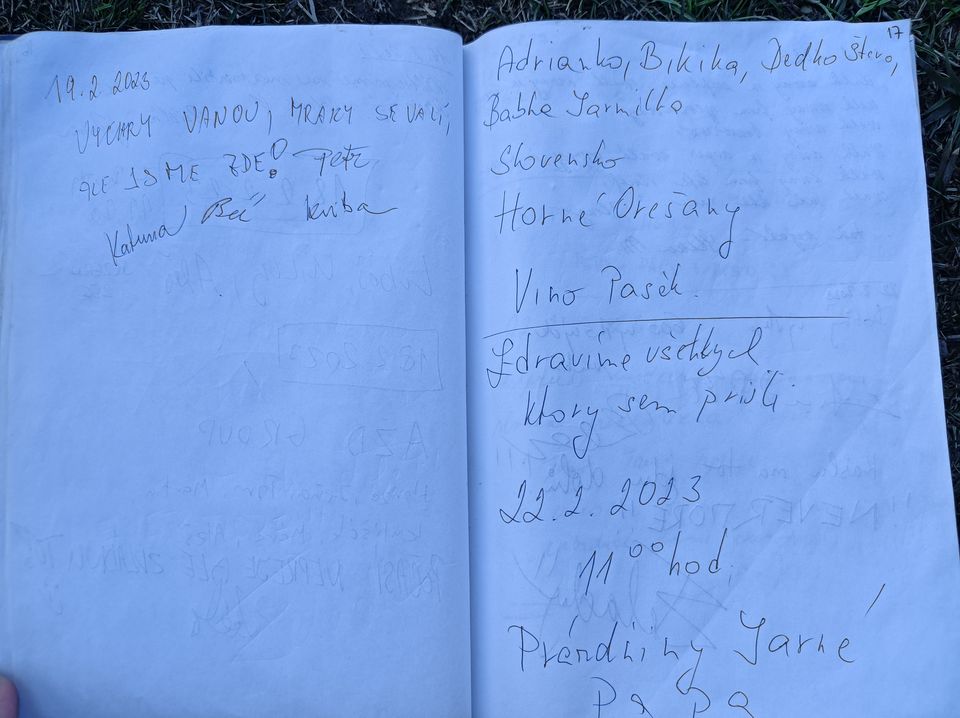 19.2.2023
VICHRY VANOU, MRAKY SE VALÍ,
ALE JSME ZDE! Petr
Kvíba
17
Adrianko, Bikika, Dedko Števo,
Babka Jarmilka
Slovensko
Horné Orešany
Vino Pasek.
Zdravíme všetkých
ktory sem prišli
22.2.2023
11 00 hod.
Prázdniny Jarné
Pa Pa